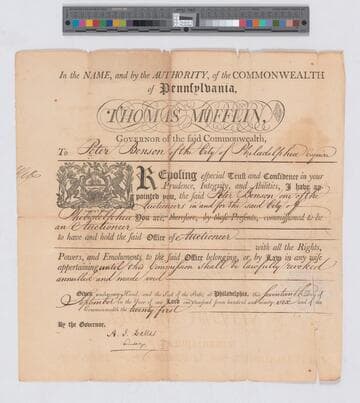 In the NAME, and by the AUTHORITY, of the COMMONWEALTH
of Pennsylvania,
THOMAS MIFFLIN,
GOVERNOR of the said Commonwealth,
To Peter Benson of the City of Philadelphia Esquire
REposing especial Trust and Confidence in your
Prudence, Integrity, and Abilities, I have ap-
pointed you, the said Peter Benson one of the
Auctioneers in and for the said City of
Philadelphia You are, therefore, by these Presents, commissioned to be
an Auctioneer
to have and hold the said Office of Auctioneer
with all the Rights,
Powers, and Emoluments, to the said Office belonging, or, by Law in any wise
appertaining until this Commission shall be lawfully revoked
annulled and made void
Given under my Hand, and the Seal of the State, at Philadelphia, the seventeenth Day of
September in the Year of our Lord one thousand seven hundred and ninety six and of the
Commonwealth the twenty first
By the Governor.
A. J. Dallas
Secy.